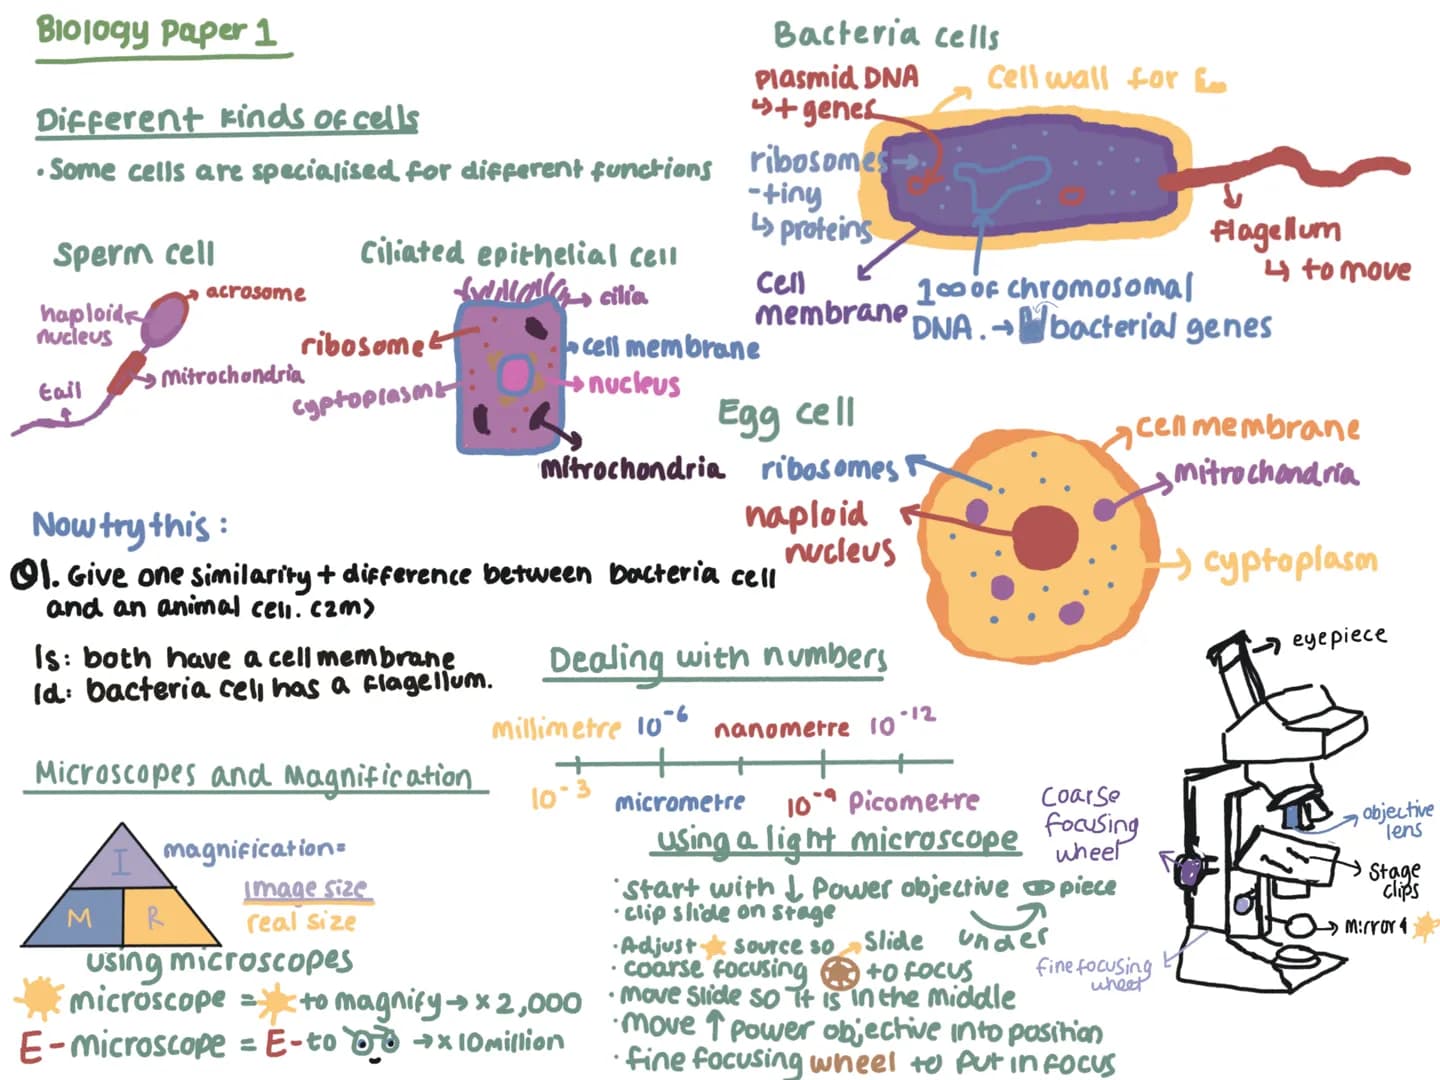 Biology Paper 1
Different kinds of cells
· Some cells are specialised for different functions
Sperm cell
acrosome
haploid
nucleus
mitrochondria
tail
Ciliated epithelial cell
cilia
ribosome
cell membrane
nucleus
cyptoplasm
mitrochondria
Bacteria cells
Plasmid DNA
↳ + genes
Cell wall for E
ribosomes
- tiny
↳ proteins
Cell
membrane
flagellum
↳ to move
1∞ of chromosomal
DNA. → bacterial genes
Egg cell
cell membrane
ribosomes
mitrochondria
haploid
nucleus
cyptoplasm
Now try this :
Q1. Give one similarity + difference between bacteria cell
and an animal cell. (2m)
1s: both have a cell membrane
1d: bacteria cell has a flagellum.
Dealing with numbers
millimetre 10⁻⁶ nanometre 10⁻¹²
10⁻³ micrometre 10⁻⁹ Picometre
Microscopes and Magnification
I
M R
magnification=
image size
real size
using microscopes
microscope = to magnify → x 2,000
E - microscope = E - to → x 10 million
using a light microscope
· start with ↓ Power objective piece
· clip slide on stage
under
· Adjust source so → Slide
· coarse focusing to focus
· move slide so it is in the middle
· move ↑ power objective into position
· fine focusing wheel to put in focus
eyepiece
Coarse
focusing
wheel
objective
lens
Stage
clips
mirror
fine focusing
wheel